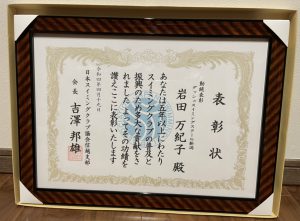 表彰状
勤続表彰
岩田 万紀子 殿
あなたは五年以上にわたり
スイミングクラブの普及と
振興のため多大な貢献をさ
れました よってその功績を
讃えここに表彰いたします
令和四年四月十九日
日本スイミングクラブ協会信越支部
会長 吉澤 邦雄